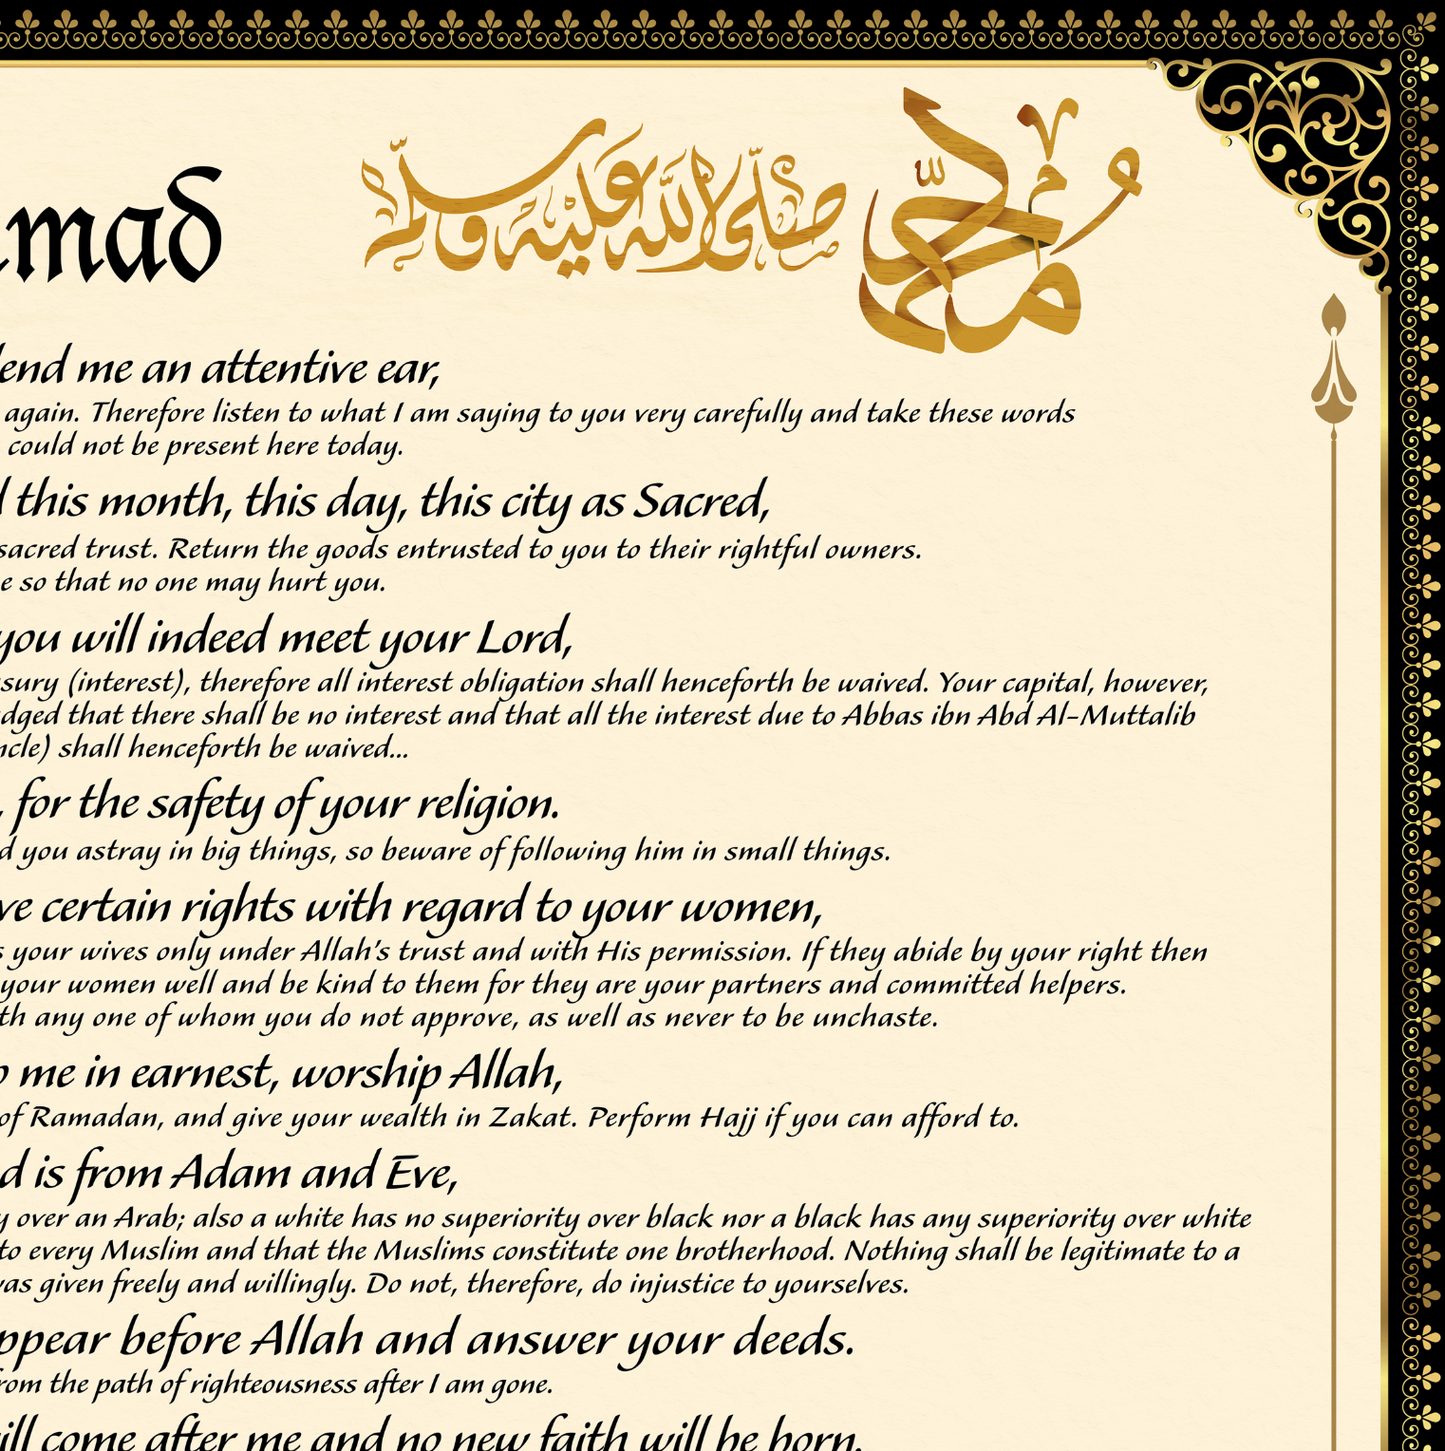 mad محمد صلى الله عليه وسلم
lend me an attentive ear,
again. Therefore listen to what I am saying to you very carefully and take these words
could not be present here today.
this month, this day, this city as Sacred,
sacred trust. Return the goods entrusted to you to their rightful owners.
e so that no one may hurt you.
you will indeed meet your Lord,
sury (interest), therefore all interest obligation shall henceforth be waived. Your capital, however,
dged that there shall be no interest and that all the interest due to Abbas ibn Abd Al-Muttalib
ncle) shall henceforth be waived...
, for the safety of your religion.
d you astray in big things, so beware of following him in small things.
ve certain rights with regard to your women,
s your wives only under Allah's trust and with His permission. If they abide by your right then
your women well and be kind to them for they are your partners and committed helpers.
th any one of whom you do not approve, as well as never to be unchaste.
o me in earnest, worship Allah,
of Ramadan, and give your wealth in Zakat. Perform Hajj if you can afford to.
d is from Adam and Eve,
y over an Arab; also a white has no superiority over black nor a black has any superiority over white
to every Muslim and that the Muslims constitute one brotherhood. Nothing shall be legitimate to a
was given freely and willingly. Do not, therefore, do injustice to yourselves.
ppear before Allah and answer your deeds.
rom the path of righteousness after I am gone.
ill come after me and no new faith will be born.